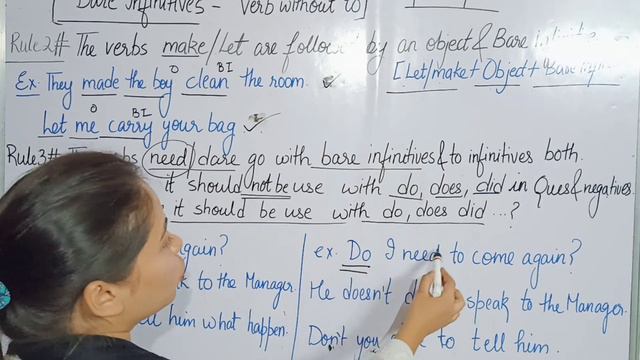 [Bare Infinitives - Verb without to]
Rule2# The verbs make/Let are follow by an object & Bare
Ex: They made the boy clean the room.
O BI
[Let/make + Object + Bare
Let me carry your bag
O BI
Rule3# need/dare go with bare infinitives & to infinitives both.
it should not be use with do, does, did in Ques & negatives
it should be use with do, does did ...?
again?
to the Manager.
him what happen.
ex. Do I need to come again?
He doesn't speak to the Manager.
Don't you to tell him.